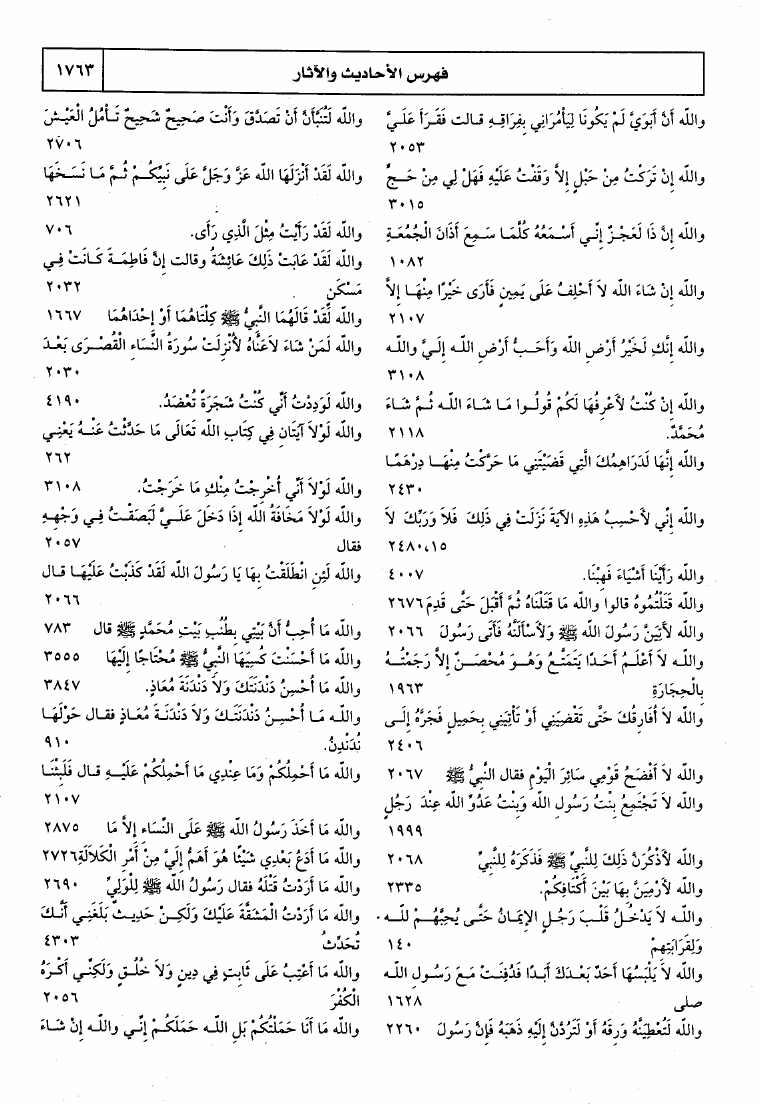 فهرس الأحاديث والآثار
١٧٦٣
والله أَنَّ أَبَوَيَّ لَمْ يَكُونَا لِيَأْمُرَانِي بِفِرَاقِهِ قالت فَقَرَأَ عَلَيَّ
٢٠٥٣
والله إِنْ تَرَكْتُ مِنْ حَبْلٍ إِلاَّ وَقَفْتُ عَلَيْهِ فَهَلْ لِي مِنْ حَجٍّ
٣٠١٥
والله إِنَّ ذَا لَعَجْزٌ إِنِّي أَسْمَعُهُ كُلَّمَا سَمِعَ أَذَانَ الْجُمُعَةِ
١٠٨٢
والله إِنْ شَاءَ الله لاَ أَحْلِفُ عَلَى يَمِينٍ فَأَرَى خَيْرًا مِنْهَا إِلاَّ
٢١٠٧
والله إِنَّكِ لَخَيْرُ أَرْضِ الله وَأَحَبُّ أَرْضِ الله إِلَيَّ والله
٣١٠٨
والله إِنْ كُنْتُ لأَعْرِفُهَا لَكُمْ قُولُوا مَا شَاءَ الله ثُمَّ شَاءَ
مُحَمَّدٌ. ٢١١٨
والله إِنَّهَا لَدَرَاهِمُكَ الَّتِي قَضَيْتَنِي مَا حَرَّكْتُ مِنْهَا دِرْهَمًا
٢٤٣٠
والله إِنِّي لأَحْسِبُ هَذِهِ الآيَةَ نَزَلَتْ فِي ذَلِكَ فَلاَ وَرَبِّكَ لاَ
١٥، ٢٤٨٠
والله رَأَيْنَا أَشْيَاءَ فَهِبْنَا. ٤٠٠٧
والله قَتَلْتُمُوهُ قالوا والله مَا قَتَلْنَاهُ ثُمَّ أَقْبَلَ حَتَّى قَدِمَ ٢٦٧٦
والله لآتِيَنَّ رَسُولَ الله ﷺ وَلأَسْأَلَنَّهُ فَأَتَى رَسُولَ ٢٠٦٦
والله لاَ أَعْلَمُ أَحَدًا يَتَمَتَّعُ وَهُوَ مُحْصَنٌ إِلاَّ رَجَمْتُهُ
بِالْحِجَارَةِ ١٩٦٣
والله لاَ أُفَارِقُكَ حَتَّى تَقْضِيَنِي أَوْ تَأْتِيَنِي بِحَمِيلٍ فَجَرَّهُ إِلَى
٢٤٠٦
والله لاَ أَفْضَحُ قَوْمِي سَائِرَ الْيَوْمِ فقال النَّبِيُّ ﷺ ٢٠٦٧
والله لاَ تَجْتَمِعُ بِنْتُ رَسُولِ الله وَبِنْتُ عَدُوِّ الله عِنْدَ رَجُلٍ
١٩٩٩
والله لأَذْكُرَنَّ ذَلِكَ لِلنَّبِيِّ ﷺ فَذَكَرَهُ لِلنَّبِيِّ ٢٠٦٨
والله لأَرْمِيَنَّ بِهَا بَيْنَ أَكْتَافِكُمْ. ٢٣٣٥
والله لاَ يَدْخُلُ قَلْبَ رَجُلٍ الإِيمَانُ حَتَّى يُحِبَّهُمْ لله
وَلِقَرَابَتِهِمْ ١٤٠
والله لاَ يَلْبَسُهَا أَحَدٌ بَعْدَكَ أَبَدًا فَدُفِنَتْ مَعَ رَسُولِ الله
صلى ١٦٢٨
والله لَتُعْطِيَنَّهُ وَرِقَهُ أَوْ لَتَرُدَّنَّ إِلَيْهِ ذَهَبَهُ فَإِنَّ رَسُولَ ٢٢٦٠
والله لَتُنَبَّأَنَّ أَنْ تَصَدَّقَ وَأَنْتَ صَحِيحٌ شَحِيحٌ تَأْمُلُ الْعَيْشَ
٢٧٠٦
والله لَقَدْ أَنْزَلَهَا الله عَزَّ وَجَلَّ عَلَى نَبِيِّكُمْ ثُمَّ مَا نَسَخَهَا
٢٦٢١
والله لَقَدْ رَأَيْتُ مِثْلَ الَّذِي رَأَى. ٧٠٦
والله لَقَدْ عَابَتْ ذَلِكَ عَائِشَةُ وقالت إِنَّ فَاطِمَةَ كَانَتْ فِي
مَسْكَنٍ ٢٠٣٢
والله لَقَدْ قَالَهُمَا النَّبِيُّ ﷺ كِلْتَاهُمَا أَوْ إِحْدَاهُمَا ١٦٦٧
والله لَمَنْ شَاءَ لاَعَنَّاهُ لأُنْزِلَتْ سُورَةُ النِّسَاءِ الْقُصْرَى بَعْدَ
٢٠٣٠
والله لَوَدِدْتُ أَنِّي كُنْتُ شَجَرَةً تُعْضَدُ. ٤١٩٠
والله لَوْلاَ آيَتَانِ فِي كِتَابِ الله تَعَالَى مَا حَدَّثْتُ عَنْهُ يَعْنِي
٢٦٢
والله لَوْلاَ أَنِّي أُخْرِجْتُ مِنْكِ مَا خَرَجْتُ. ٣١٠٨
والله لَوْلاَ مَخَافَةُ الله إِذَا دَخَلَ عَلَيَّ لَبَصَقْتُ فِي وَجْهِهِ
فقال ٢٠٥٧
والله لَئِنِ انْطَلَقْتُ بِهَا يَا رَسُولَ الله لَقَدْ كَذَبْتُ عَلَيْهَا قال
٢٠٦٦
والله مَا أُحِبُّ أَنَّ بَيْتِي بِطُنُبِ بَيْتِ مُحَمَّدٍ ﷺ قال ٧٨٣
والله مَا أَحْسَنْتَ كُسِيَهَا النَّبِيُّ ﷺ مُحْتَاجًا إِلَيْهَا ٣٥٥٥
والله مَا أُحْسِنُ دَنْدَنَتَكَ وَلاَ دَنْدَنَةَ مُعَاذٍ. ٣٨٤٧
والله مَا أُحْسِنُ دَنْدَنَتَكَ وَلاَ دَنْدَنَةَ مُعَاذٍ فقال حَوْلَهَا
نُدَنْدِنُ. ٩١٠
والله مَا أَحْمِلُكُمْ وَمَا عِنْدِي مَا أَحْمِلُكُمْ عَلَيْهِ قال فَلَبِثْنَا
٢١٠٧
والله مَا أَخَذَ رَسُولُ الله ﷺ عَلَى النِّسَاءِ إِلاَّ مَا ٢٨٧٥
والله مَا أَدَعُ بَعْدِي شَيْئًا هُوَ أَهَمُّ إِلَيَّ مِنْ أَمْرِ الْكَلاَلَةِ ٢٧٢٦
والله مَا أَرَدْتُ قَتْلَهُ فقال رَسُولُ الله ﷺ لِلْوَلِيِّ ٢٦٩٠
والله مَا أَرَدْتُ الْمَشَقَّةَ عَلَيْكَ وَلَكِنْ حَدِيثٌ بَلَغَنِي أَنَّكَ
تُحَدِّثُ ٤٣٠٣
والله مَا أَعْتِبُ عَلَى ثَابِتٍ فِي دِينٍ وَلاَ خُلُقٍ وَلَكِنِّي أَكْرَهُ
الْكُفْرَ ٢٠٥٦
والله مَا أَنَا حَمَلْتُكُمْ بَلِ الله حَمَلَكُمْ إِنِّي والله إِنْ شَاءَ